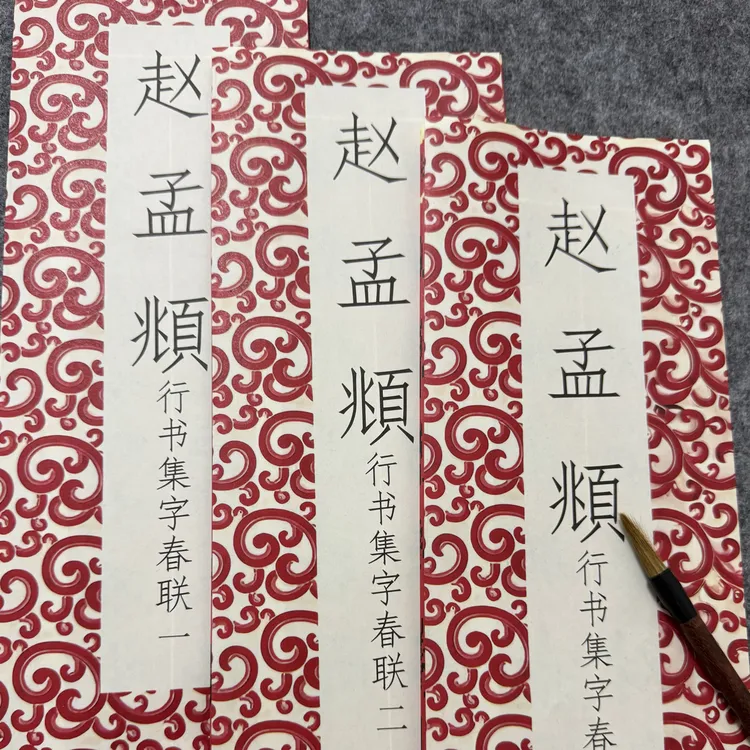 赵孟頫行书集字春联一
赵孟頫行书集字春联二
赵孟頫行书集字春